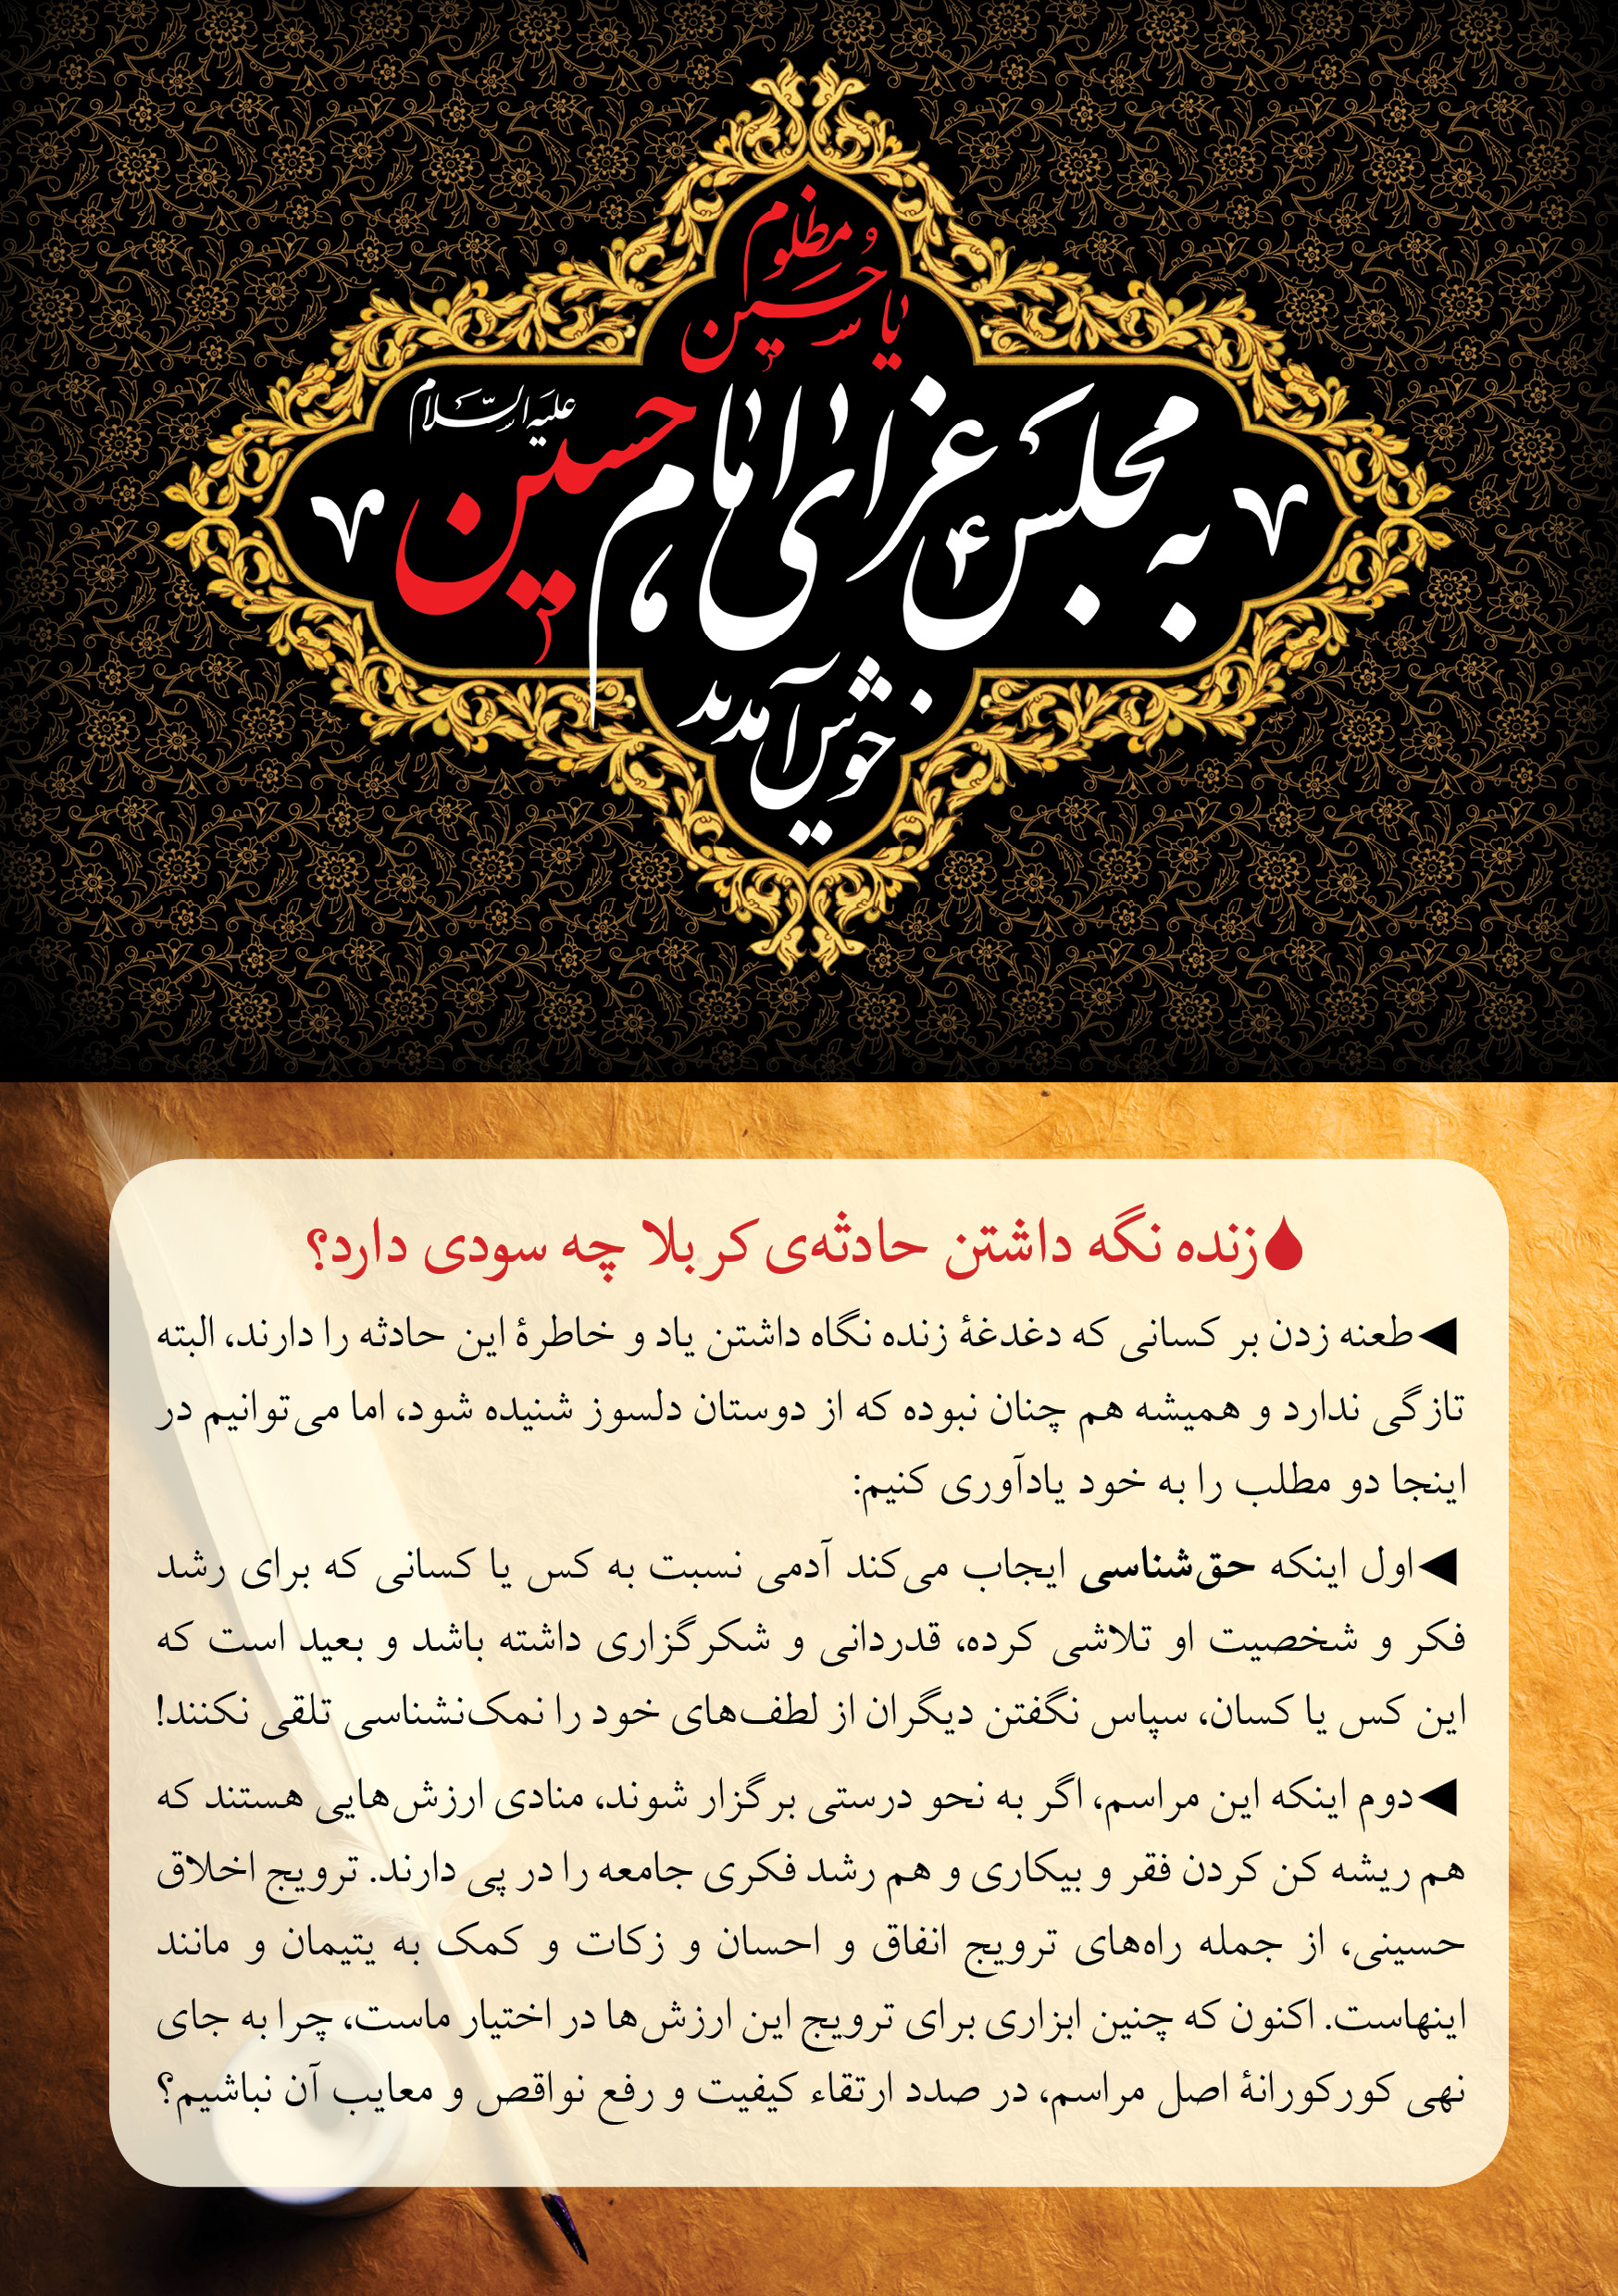 یا حسین مظلوم
به مجلس عزای امام حسین علیه السلام
خوش آمدید
زنده نگه داشتن حادثه‌ی کربلا چه سودی دارد؟
◀طعنه زدن بر کسانی که دغدغهٔ زنده نگاه داشتن یاد و خاطرهٔ این حادثه را دارند، البته
تازگی ندارد و همیشه هم چنان نبوده که از دوستان دلسوز شنیده شود، اما می‌توانیم در
اینجا دو مطلب را به خود یادآوری کنیم:
◀اول اینکه حق‌شناسی ایجاب می‌کند آدمی نسبت به کس یا کسانی که برای رشد
فکر و شخصیت او تلاشی کرده، قدردانی و شکرگزاری داشته باشد و بعید است که
این کس یا کسان، سپاس نگفتن دیگران از لطف‌های خود را نمک‌نشناسی تلقی نکنند!
◀دوم اینکه این مراسم، اگر به نحو درستی برگزار شوند، منادی ارزش‌هایی هستند که
هم ریشه کن کردن فقر و بیکاری و هم رشد فکری جامعه را در پی دارند. ترویج اخلاق
حسینی، از جمله راه‌های ترویج انفاق و احسان و زکات و کمک به یتیمان و مانند
اینهاست. اکنون که چنین ابزاری برای ترویج این ارزش‌ها در اختیار ماست، چرا به جای
نهی کورکورانهٔ اصل مراسم، در صدد ارتقاء کیفیت و رفع نواقص و معایب آن نباشیم؟